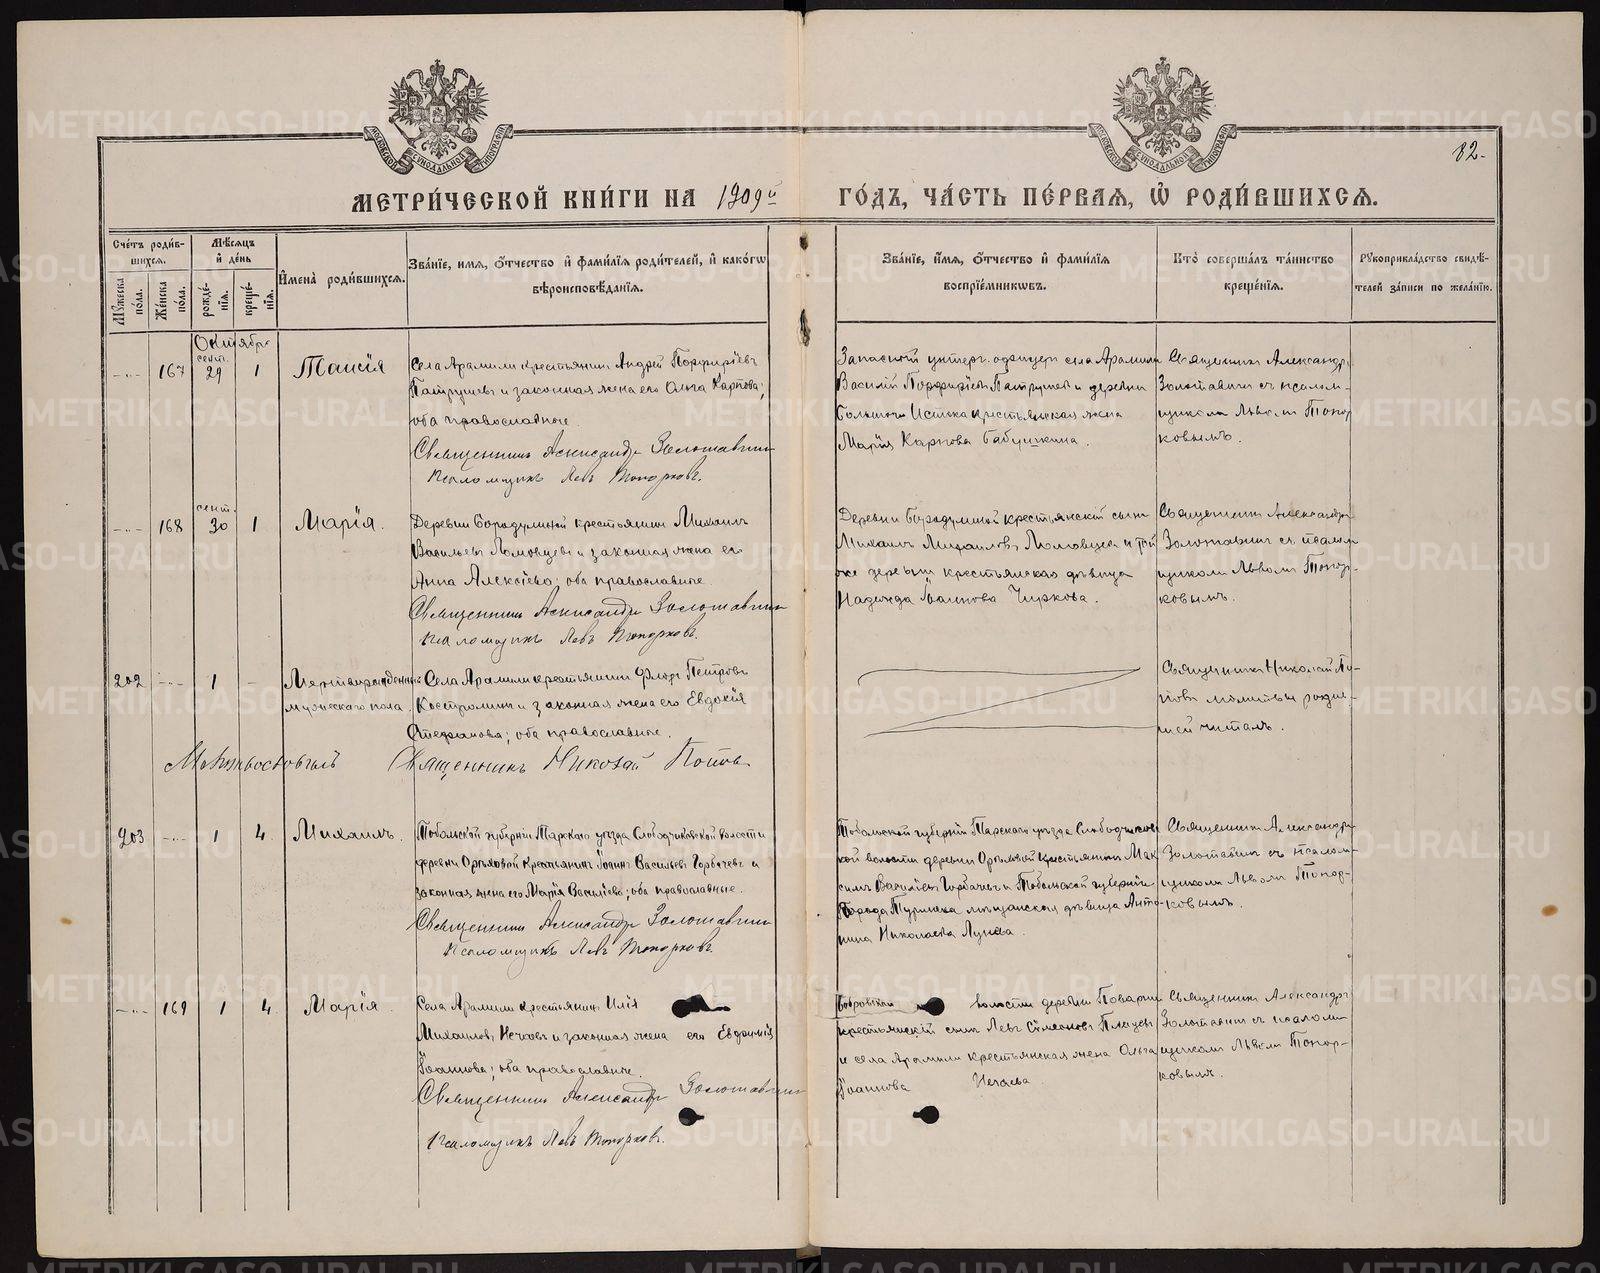 МОСКОВСКОЙ СѴНОДАЛЬНОЙ ТИПОГРАФІИ
МОСКОВСКОЙ СѴНОДАЛЬНОЙ ТИПОГРАФІИ
82.
МЕТРИ́ЧЕСКОЙ КНИ́ГИ НА 1909й ГО́ДЪ, ЧА́СТЬ ПЕ́РВАЯ, Ѡ РОДИ́ВШИХСЯ.
Сче́тъ роди́в-
шихся.
Мѣ́сяцъ
и де́нь
Мꙋ́жеска по́ла.
Же́нска по́ла.
рожде́-
нія.
креще́-
нія.
И҆мена̀ роди́вшихся.
Зва́ніе, имя, Ѻ҆́тчество и҆ фами́лія роди́телей, и҆ како́гѡ
вѣроисповѣ́данія.
Зва́ніе, и҆́мя, ѻ҆́тчество и҆ фами́лія
воспрїе́мникѡвъ.
Кто̀ соверша́лъ та́инство
креще́нія.
Рꙋкоприкла́дство свидѣ́-
телей за́писи по жела́нію.
Октября
сент.
167 29 1 Таисія
Села Арамили крестьянинъ Андрей Порфиріевъ
Патрушевъ и законная жена его Ольга Карпова;
оба православные.
Священникъ Александръ Золотавинъ
Псаломщикъ Левъ Топорковъ.
Запасной унтеръ-офицеръ села Арамили
Василій Порфиріевъ Патрушевъ и деревни
Большого Истока крестьянская жена
Марія Карпова Бабушкина.
Священникъ Александръ
Золотавинъ съ псалом-
щикомъ Львомъ Топор-
ковымъ.
сент.
168 30 1 Марія.
Деревни Бородулиной крестьянинъ Михаилъ
Васильевъ Ломовцевъ и законная жена его
Анна Алексіева; оба православные.
Священникъ Александръ Золотавинъ
Псаломщикъ Левъ Топорковъ.
Деревни Бородулиной крестьянскій сынъ
Михаилъ Михаиловъ Ломовцевъ и той
же деревни крестьянская дѣвица
Надежда Іоаннова Чиркова.
Священникъ Александръ
Золотавинъ съ псалом-
щикомъ Львомъ Топор-
ковымъ.
202 1 Мертворожденный
мужескаго пола.
Села Арамили крестьянинъ Флоръ Петровъ
Костроминъ и законная жена его Евдокія
Стефанова; оба православные.
Священникъ Николай Поповъ
Священникъ Николай По-
повъ молитвы родив-
шей читалъ.
203 1 4 Михаилъ.
Тобольской губерніи Тарскаго уѣзда Слободчиковской волости
деревни Орѣховой крестьянинъ Іоаннъ Васильевъ Горбачевъ и
законная жена его Марія Василіева; оба православные.
Священникъ Александръ Золотавинъ
Псаломщикъ Левъ Топорковъ.
Тобольской губерніи Тарскаго уѣзда Слободчиков-
ской волости деревни Орѣховой крестьянинъ Мак-
симъ Василіевъ Горбачевъ и Тобольской губерніи
города Туринска мѣщанская дѣвица Анто-
нина Николаева Лунева.
Священникъ Александръ
Золотавинъ съ псалом-
щикомъ Львомъ Топор-
ковымъ.
169 1 4 Марія.
Села Арамили крестьянинъ Илія
Михаиловъ Нечаевъ и законная жена его Евфимія
Іоаннова; оба православные.
Священникъ Александръ Золотавинъ
Псаломщикъ Левъ Топорковъ.
Бобровской волости деревни Поварни
крестьянскій сынъ Левъ Симеоновъ
и села Арамили крестьянская жена Ольга
Іоаннова Нечаева.
Священникъ Александръ
Золотавинъ съ псалом-
щикомъ Львомъ Топор-
ковымъ.
METRIKI.GASO-URAL.RU